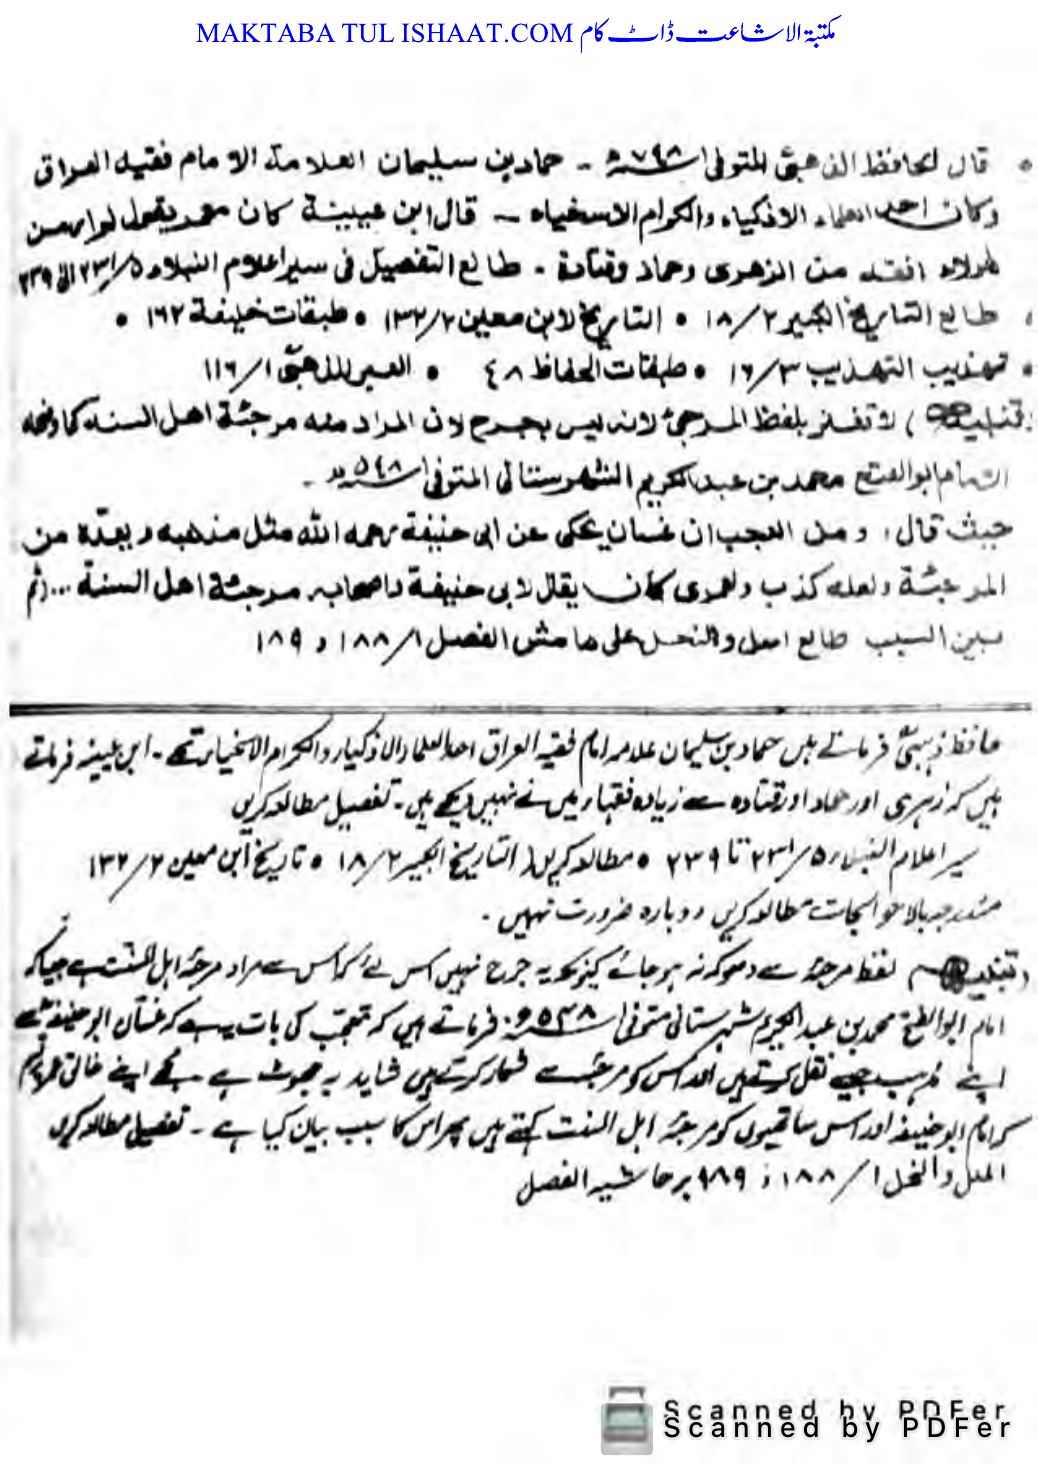 MAKTABA TUL ISHAAT.COM مکتبۃ الاشاعت ڈاٹ کام
• قال الحافظ الذهبیؒ المتوفی ٧٤٨ﻫ ۔ حماد بن سلیمان العلامة الامام فقیه العراق
وکان احد العلماء الاذکیاء والکرام الاسخیاء ۔ قال ابن عیینة کان معمر یقول لم ار من
هؤلاء افقه من الزهری وحماد وقتادة ۔ طالع التفصیل فی سیر اعلام النبلاء ٥/٢٣١ الی ٢٣٩
، طالع التاریخ الکبیر ٢/١٨ • التاریخ لابن معین ٢/١٣٢ • طبقات خلیفة ١٦٢ •
• تهذیب التهذیب ٣/١٦ • طبقات الحفاظ ٤٨ • العبر للذهبیؒ ١/١١٦
(تنبیه) لا تغتر بلفظ المرجئ لانه لیس بجرح لان المراد منه مرجئة اهل السنه کما وضحه
الامام ابو الفتح محمد بن عبد الکریم الشهرستانی المتوفی ٥٤٨ﻫ ۔
حیث قال، ومن العجب ان غسان یحکی عن ابی حنیفة رحمه الله مثل مذهبه ویعده من
المرجئة ولعله کذب ولعمری کان یقال لابی حنیفة واصحابه مرجئة اهل السنة ...(ثم
یبین السبب طالع الملل والنحل علی هامش الفصل ١/١٨٨ و ١٨٩
حافظ ذہبیؒ فرماتے ہیں حماد بن سلیمان علامہ امام فقیہ العراق احد العلماء الاذکیاء والکرام الاسخیاء تھے ۔ ابن عیینہ فرماتے
ہیں کہ زہری اور حماد اور قتادہ سے زیادہ فقہاء میں نے نہیں دیکھے ہیں ۔ تفصیل مطالعہ کریں
سیر اعلام النبلاء ٥/٢٣١ تا ٢٣٩ • مطالعہ کریں التاریخ الکبیر ٢/١٨ • تاریخ ابن معین ٢/١٣٢
مندرجہ بالا حوالجات مطالعہ کریں دوبارہ ضرورت نہیں ۔
(تنبیہ) لفظ مرجئہ سے دھوکہ نہ ہو جائے کیونکہ یہ جرح نہیں اس لئے کہ اس سے مراد مرجئہ اہل السنت ہے جیسا کہ
امام ابو الفتح محمد بن عبد الکریم شہرستانی متوفی ٥٤٨ھ فرماتے ہیں کہ تعجب کی بات یہ ہے کہ غسان ابو حنیفہؒ سے
اپنے مذہب جیسے نقل کرتے ہیں اور اس کو مرجئہ سے شمار کرتے ہیں شاید یہ جھوٹ ہے مجھے اپنے خالق
کہ امام ابو حنیفہ اور اس ساتھیوں کو مرجئہ اہل السنت کہتے ہیں پھر اس کا سبب بیان کیا ہے ۔ تفصیل مطالعہ کریں
الملل والنحل ١/١٨٨ ، ١٨٩ بر حاشیہ الفصل
Scanned by PDFer
Scanned by PDFer